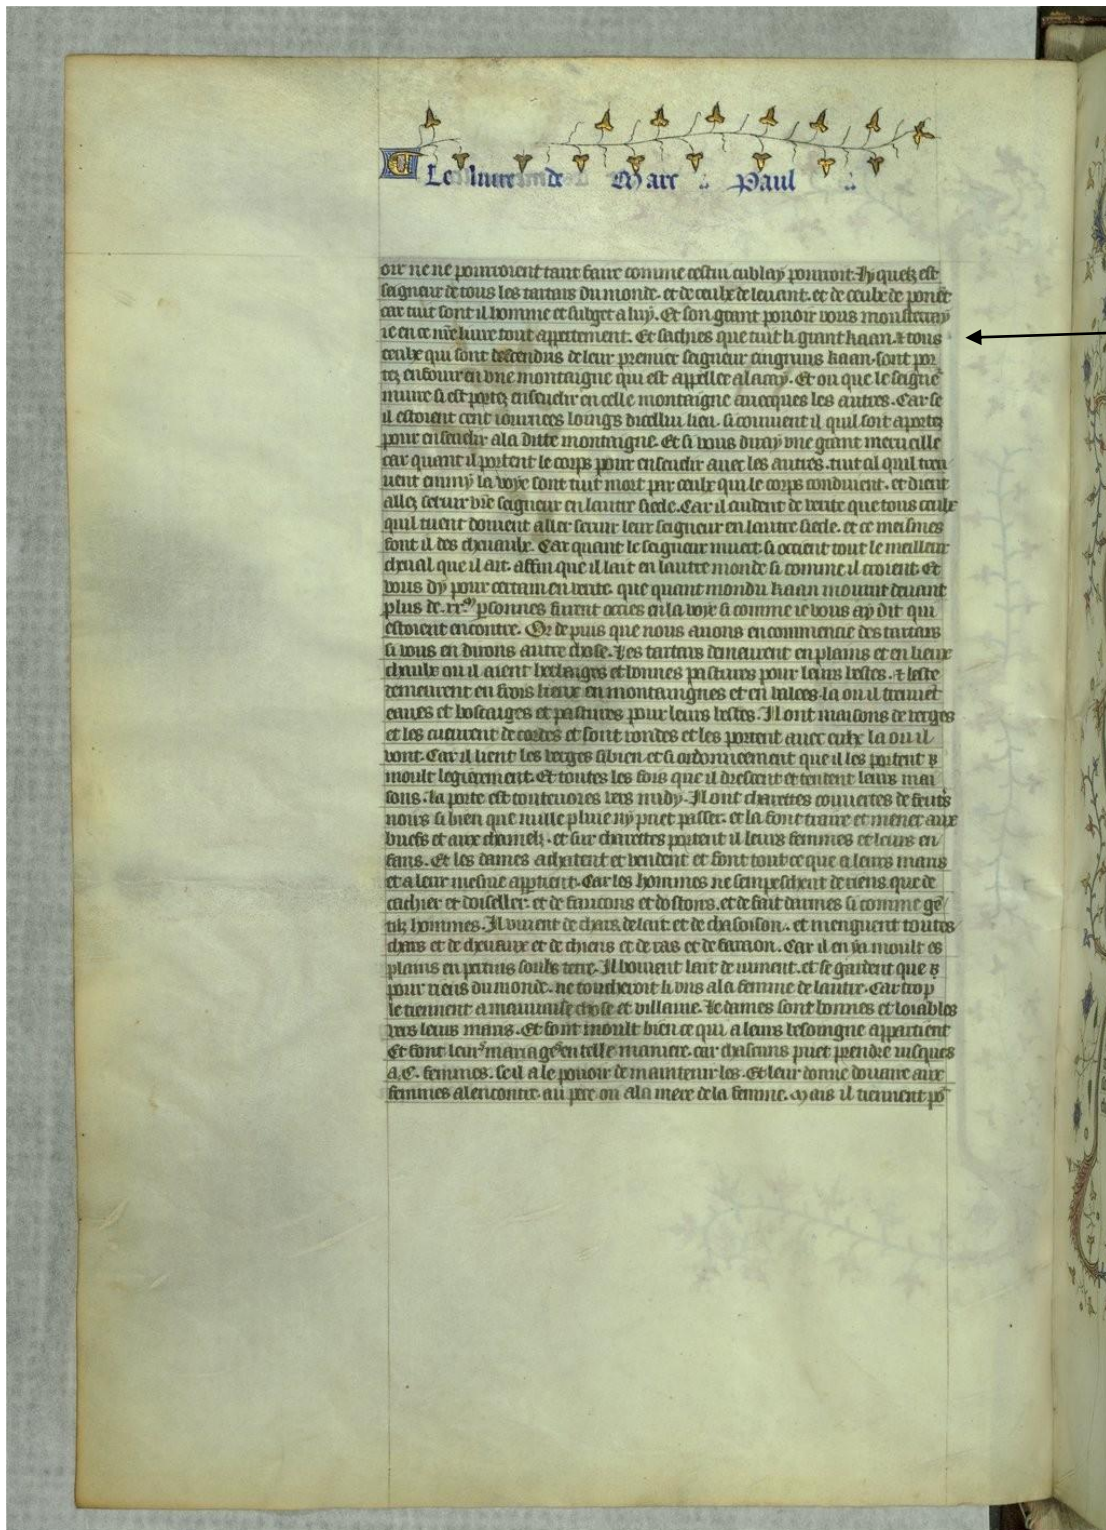 Le liure de Marc Paul
oir ne ne pourroient tant faire comme cestui cublay pourroit. Ly quelz est
seigneur de tous les tartars du monde. et de ceulx de leuant. et de ceulx de ponēt
car tuit sont il homme et subget a luy. Et son grant pouoir vous monsterray
ie en ce nr̄e liure tout appertement. Et sachies que tuit li grant kaan. ⁊ tous
ceulx qui sont descendus de leur premier seigneur cinguins kaan. sont por
tez enfouir en vne montaigne qui est appellee alacay. Et ou que le seignē
muire si est portez enseuelir en celle montaigne auecques les autres. Car se
il estoient cent iournees loings dicellui lieu. si conuient il quil soit aportez
pour enseuelir a la ditte montaigne. Et si vous diray vne grant merueille
car quant il portent le corps pour enseuelir auec les autres. tuit cil quil treu
uent emmy la voye sont tuit mort par ceulx qui le corps conduient. et dient
allez seruir vr̄e seigneur en lautre siecle. Car il cuident de verite que tous ceulx
quil tuent doiuent aller seruir leur seigneur en lautre siecle. et ce meismes
font il des cheuaulx. Car quant le seigneur muert. si occient tout le meilleur
cheual que il ait. affin que il lait en lautre monde si comme il croient. Et
vous dy pour certain en verite. que quant mondu kaan mourut deuant
plus de .xx.m̄ ꝑsonnes furent occies en la voye si comme ie vous ay dit qui
estoient encontre. Or depuis que nous auons encommencie des tartars
si vous en dirons autre chose. Les tartars demeurent en plains et en lieux
chaulx ou il aient herbaiges et bonnes pastures pour leurs bestes. ⁊ leste
demeurent en frois lieux en montaingnes et en valees. la ou il treuuēt
eaues et boscaiges et pastures pour leurs bestes. Il ont maisons de verges
et les cueurent de cordes et sont rondes et les portent auec eulx la ou il
vont. Car il lient les verges si bien et si ordonneement que il les portent
moult legierement. Et toutes les fois que il drescent et tentent leurs mai
sons. la porte est tous vers midy. Il ont charettes couuertes de feutre
noirs si bien que nulle pluie ny puet passer. et la font traire et mener aux
buefs et aux chamelz. et sur charettes portent il leurs femmes et leurs en
fans. Et les dames achatent et vendent et font tout ce que a leurs maris
et a leur mesnie appartient. Car les hommes ne sempeschent de riens. que de
cachier et doiseller. et de faucons et dostoirs. et de fait darmes si comme gē
tilz hommes. Il viuent de chars. de lait. et de chasoison. et menguent toutes
chars et de cheuaux et de chiens et de ras et de faraon. Car il en ya moult es
plains en pertuis soubs terre. Il boiuent lait de iument. et se gardent que
pour riens du monde. ne toucheroit li vns a la femme de lautre. Car trop
le tiennent a mauuaise chose et villaine. Le dames sont bonnes et loiables
vers leurs maris. Et font moult bien ce qui a leurs besoingne appartient
Et font leur mariages en telle maniere. car chascuns puet prendre iusques
a .C. femmes. se il a le pouoir de maintenir les. Et leur donne douaire aux
femmes alencontre. au pere ou a la mere de la femme. Mais il tiennent po^r